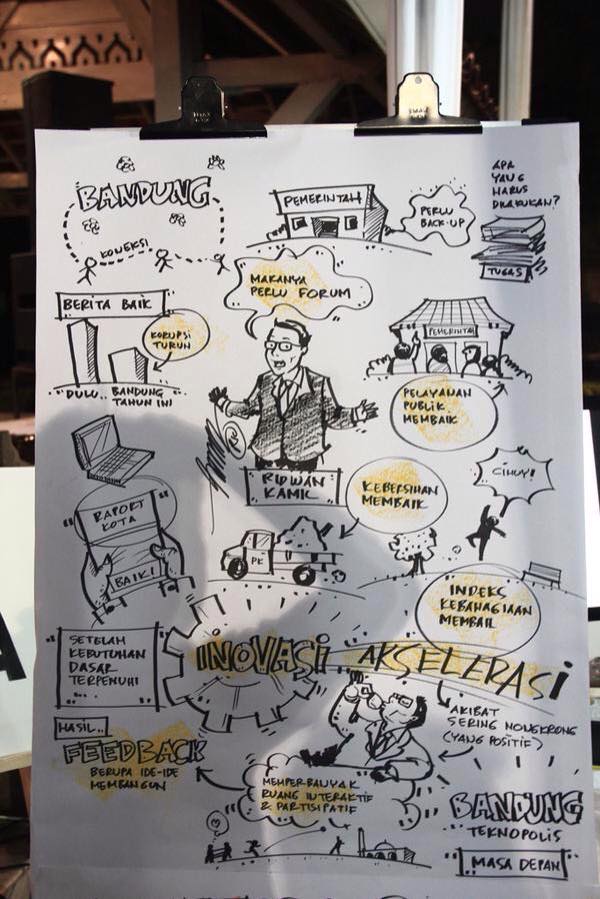 BANDUNG
KONEKSI
PEMERINTAH
PERLU
BACK-UP
APA
YANG
HARUS
DILAKUKAN?
TUGAS
MAKANYA
PERLU FORUM
BERITA BAIK
KORUPSI
TURUN
DULU..
BANDUNG
TAHUN INI
PEMERINTAH
PELAYANAN
PUBLIK
MEMBAIK
RIDWAN
KAMIL
KEBERSIHAN
MEMBAIK
CIHUY!
RAPORT
KOTA
BAIK!
PK
INDEKS
KEBAHAGIAAN
MEMBAIK
SETELAH
KEBUTUHAN
DASAR
TERPENUHI
INOVASI AKSELERASI
AKIBAT
SERING NONGKRONG
(YANG POSITIF)
HASIL..
FEEDBACK
BERUPA IDE-IDE
MEMBANGUN
MEMPERBANYAK
RUANG INTERAKTIF
& PARTISIPATIF
BANDUNG
TEKNOPOLIS
MASA DEPAN